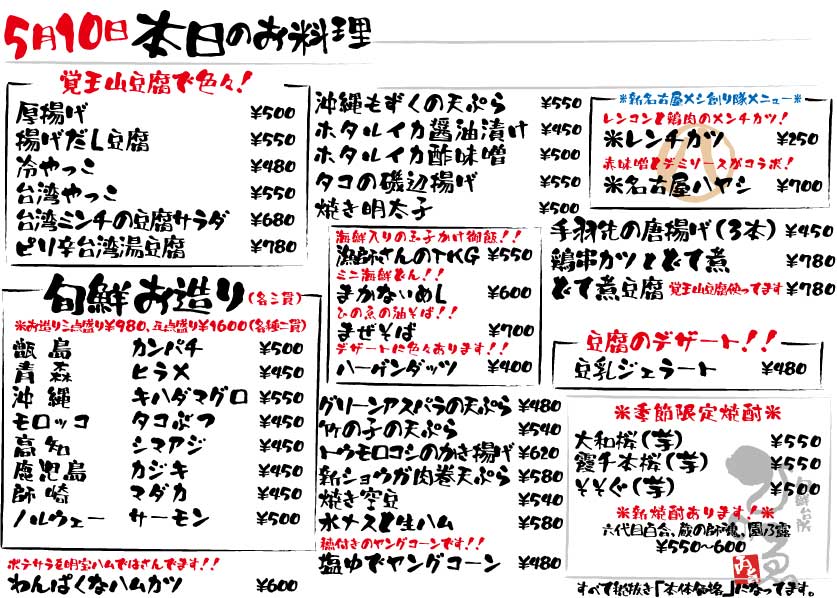 5月10日 本日のお料理
覚王山豆腐で色々!
厚揚げ ¥500
揚げだし豆腐 ¥550
冷やっこ ¥480
台湾やっこ ¥550
台湾ミンチの豆腐サラダ ¥680
ピリ辛台湾湯豆腐 ¥780
旬鮮お造り(各三貫)
※お造り三点盛り¥980、五点盛り¥1600(各種二貫)
甑島 カンパチ ¥500
青森 ヒラメ ¥450
沖縄 キハダマグロ ¥550
モロッコ タコぶつ ¥450
高知 シマアジ ¥450
鹿児島 カジキ ¥450
師崎 マダカ ¥450
ノルウェー サーモン ¥500
ポテサラを明宝ハムではさんでます!!
わんぱくなハムカツ ¥600
沖縄もずくの天ぷら ¥550
ホタルイカ醤油漬け ¥450
ホタルイカ酢味噌 ¥500
タコの磯辺揚げ ¥550
焼き明太子 ¥500
海鮮入りの玉子かけ御飯!!
漁師さんのTKG ¥550
ミニ海鮮どん!!
まかないめし ¥600
ひの魚の油そば!!
まぜそば ¥700
デザートに色々あります!!
ハーゲンダッツ ¥400
グリーンアスパラの天ぷら ¥480
竹の子の天ぷら ¥540
トウモロコシのかき揚げ ¥620
新ショウガ肉巻天ぷら ¥580
焼き空豆 ¥540
水ナスと生ハム ¥580
穂付きのヤングコーンです!!
塩ゆでヤングコーン ¥480
※新名古屋メシ創り隊メニュー※
レンコンと鶏肉のメンチカツ!
※レンチカツ ¥250
赤味噌とデミソースがコラボ!
※名古屋ハヤシ ¥700
手羽先の唐揚げ(3本) ¥450
鶏串カツとどて煮 ¥780
どて煮豆腐 覚王山豆腐使ってます ¥780
豆腐のデザート!!
豆乳ジェラート ¥480
※季節限定焼酎※
大和桜(芋) ¥550
霞千本桜(芋) ¥550
そそぐ(芋) ¥500
※新焼酎あります!※
六代目百合、蔵の師魂、園乃露
¥550~600
すべて税抜き「本体価格」になってます。